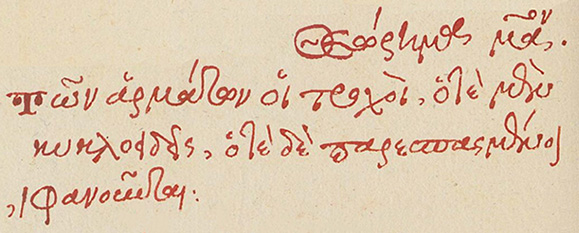 Τῶν ἁρμάτων οἱ τροχοὶ, ὁτὲ μὲν
κυκλοειδεῖς, ὁτὲ δὲ παρεσπασμένοι
φανοῦνται: